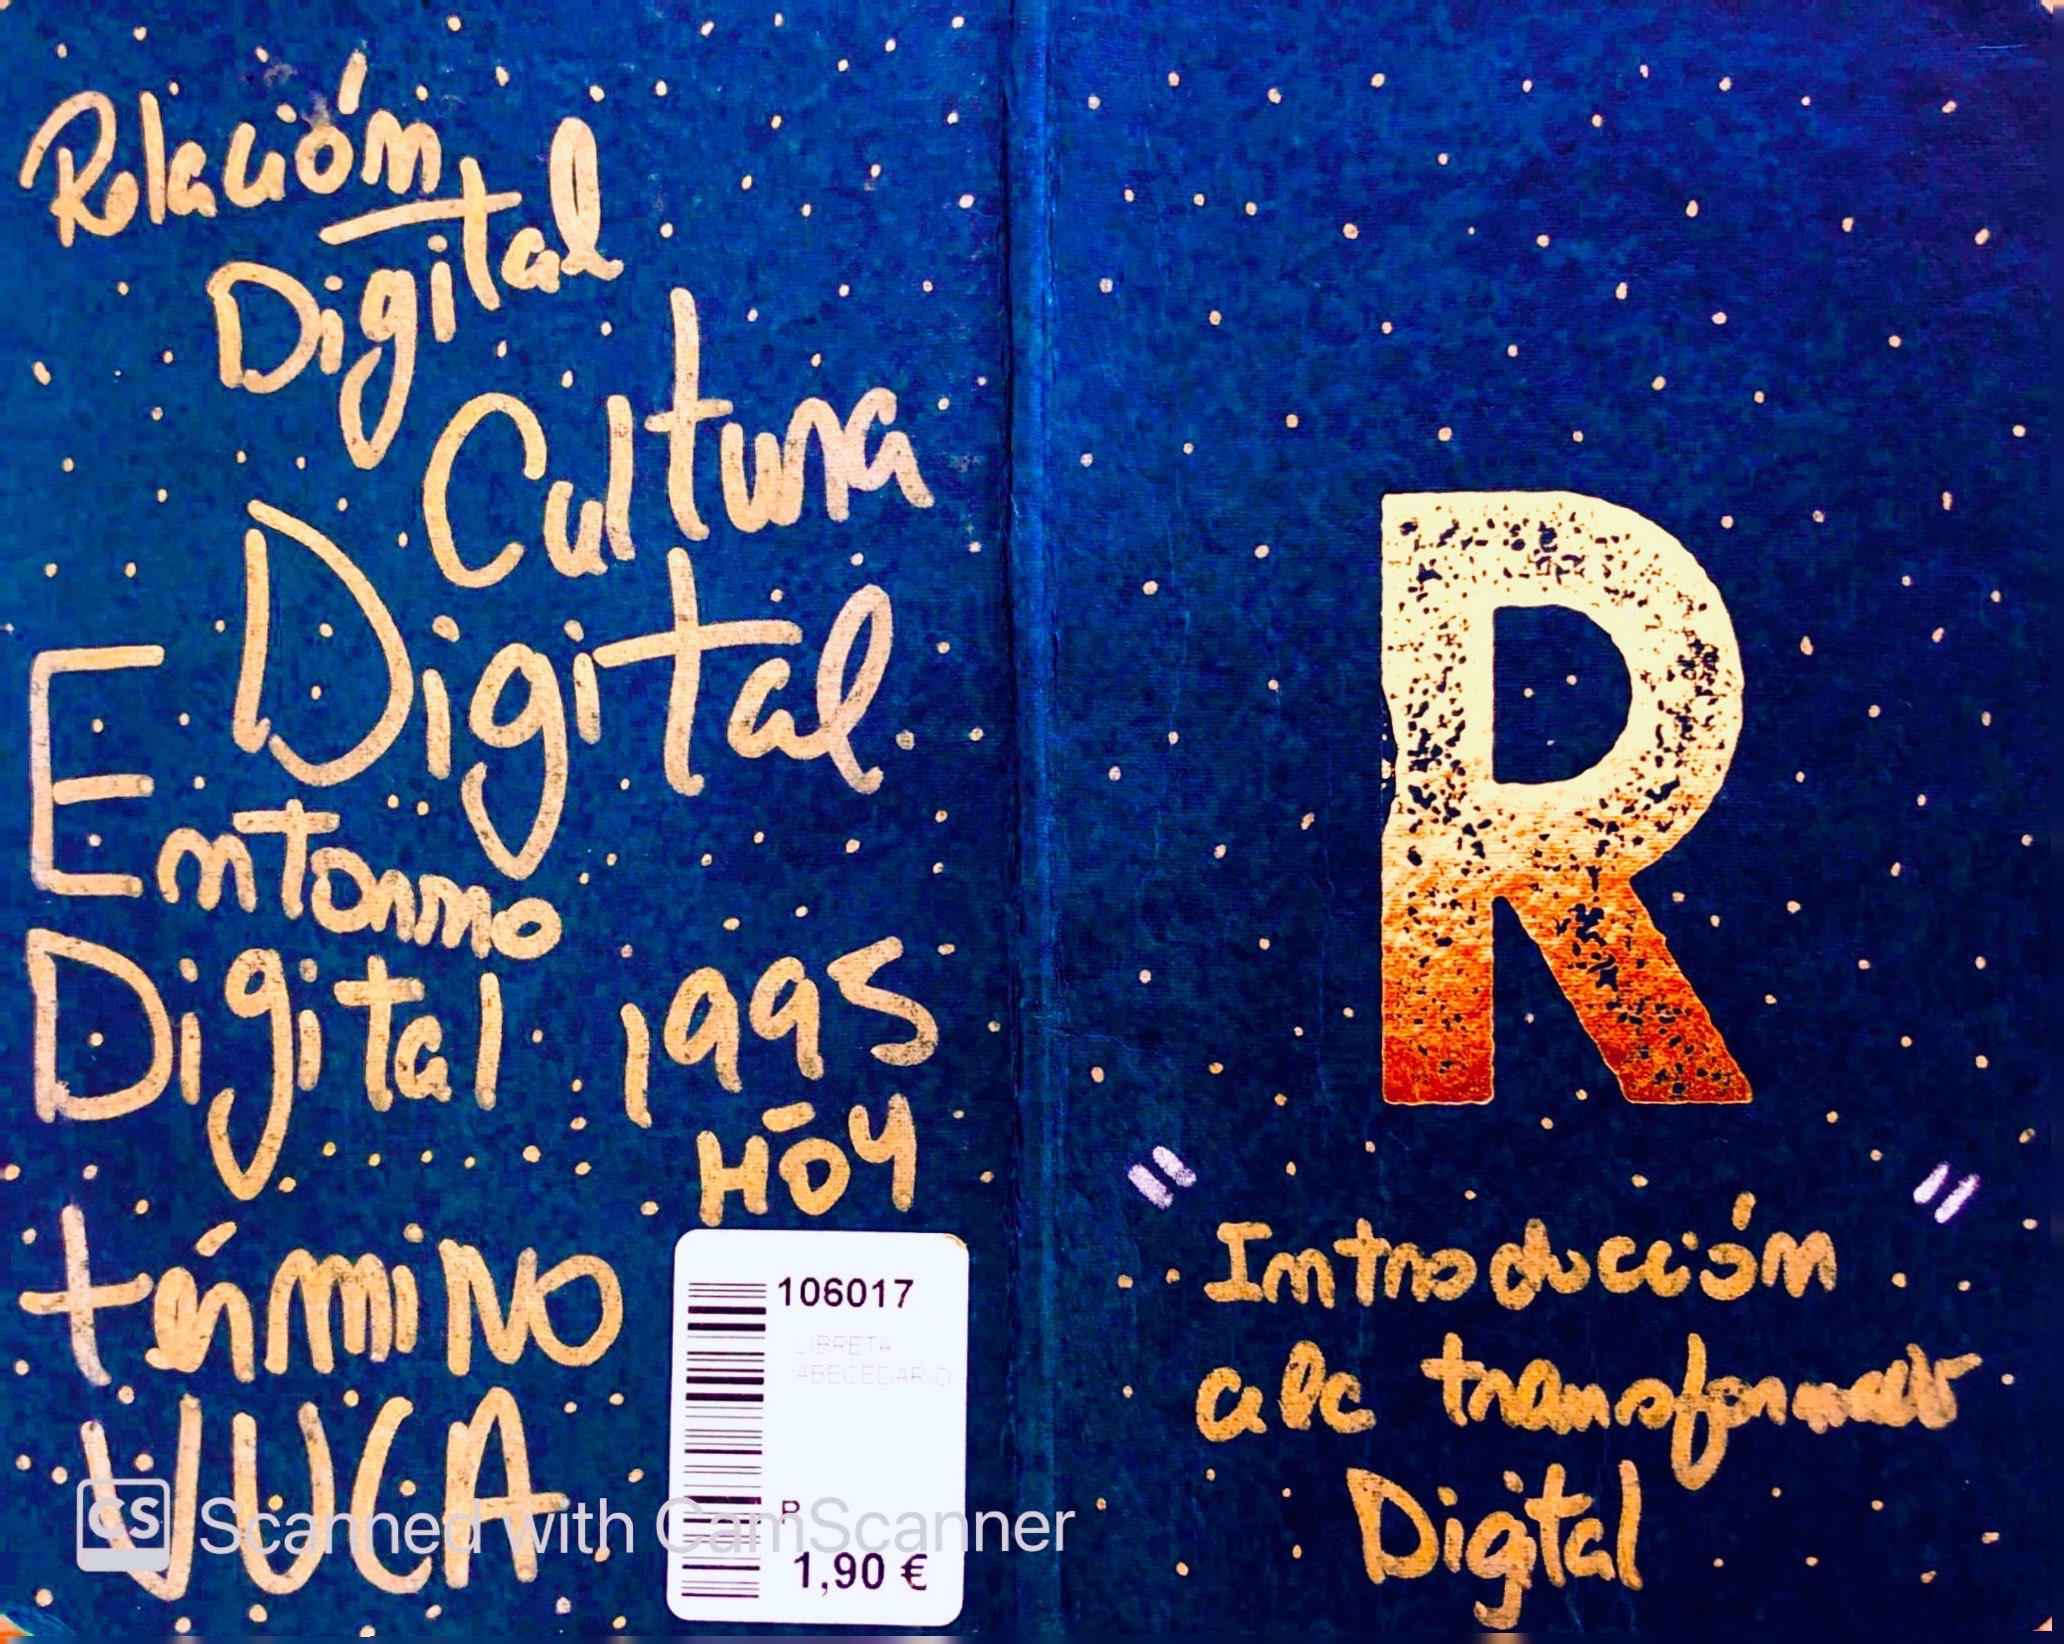 Relación
Digital
Cultura
Digital
Entorno
Digital
1995
HOY
término
VUCA
106017
LIBRETA
ABECEDARIO
R
1,90 €
CS Scanned with CamScanner
R
"Introducción
a la
Digital"